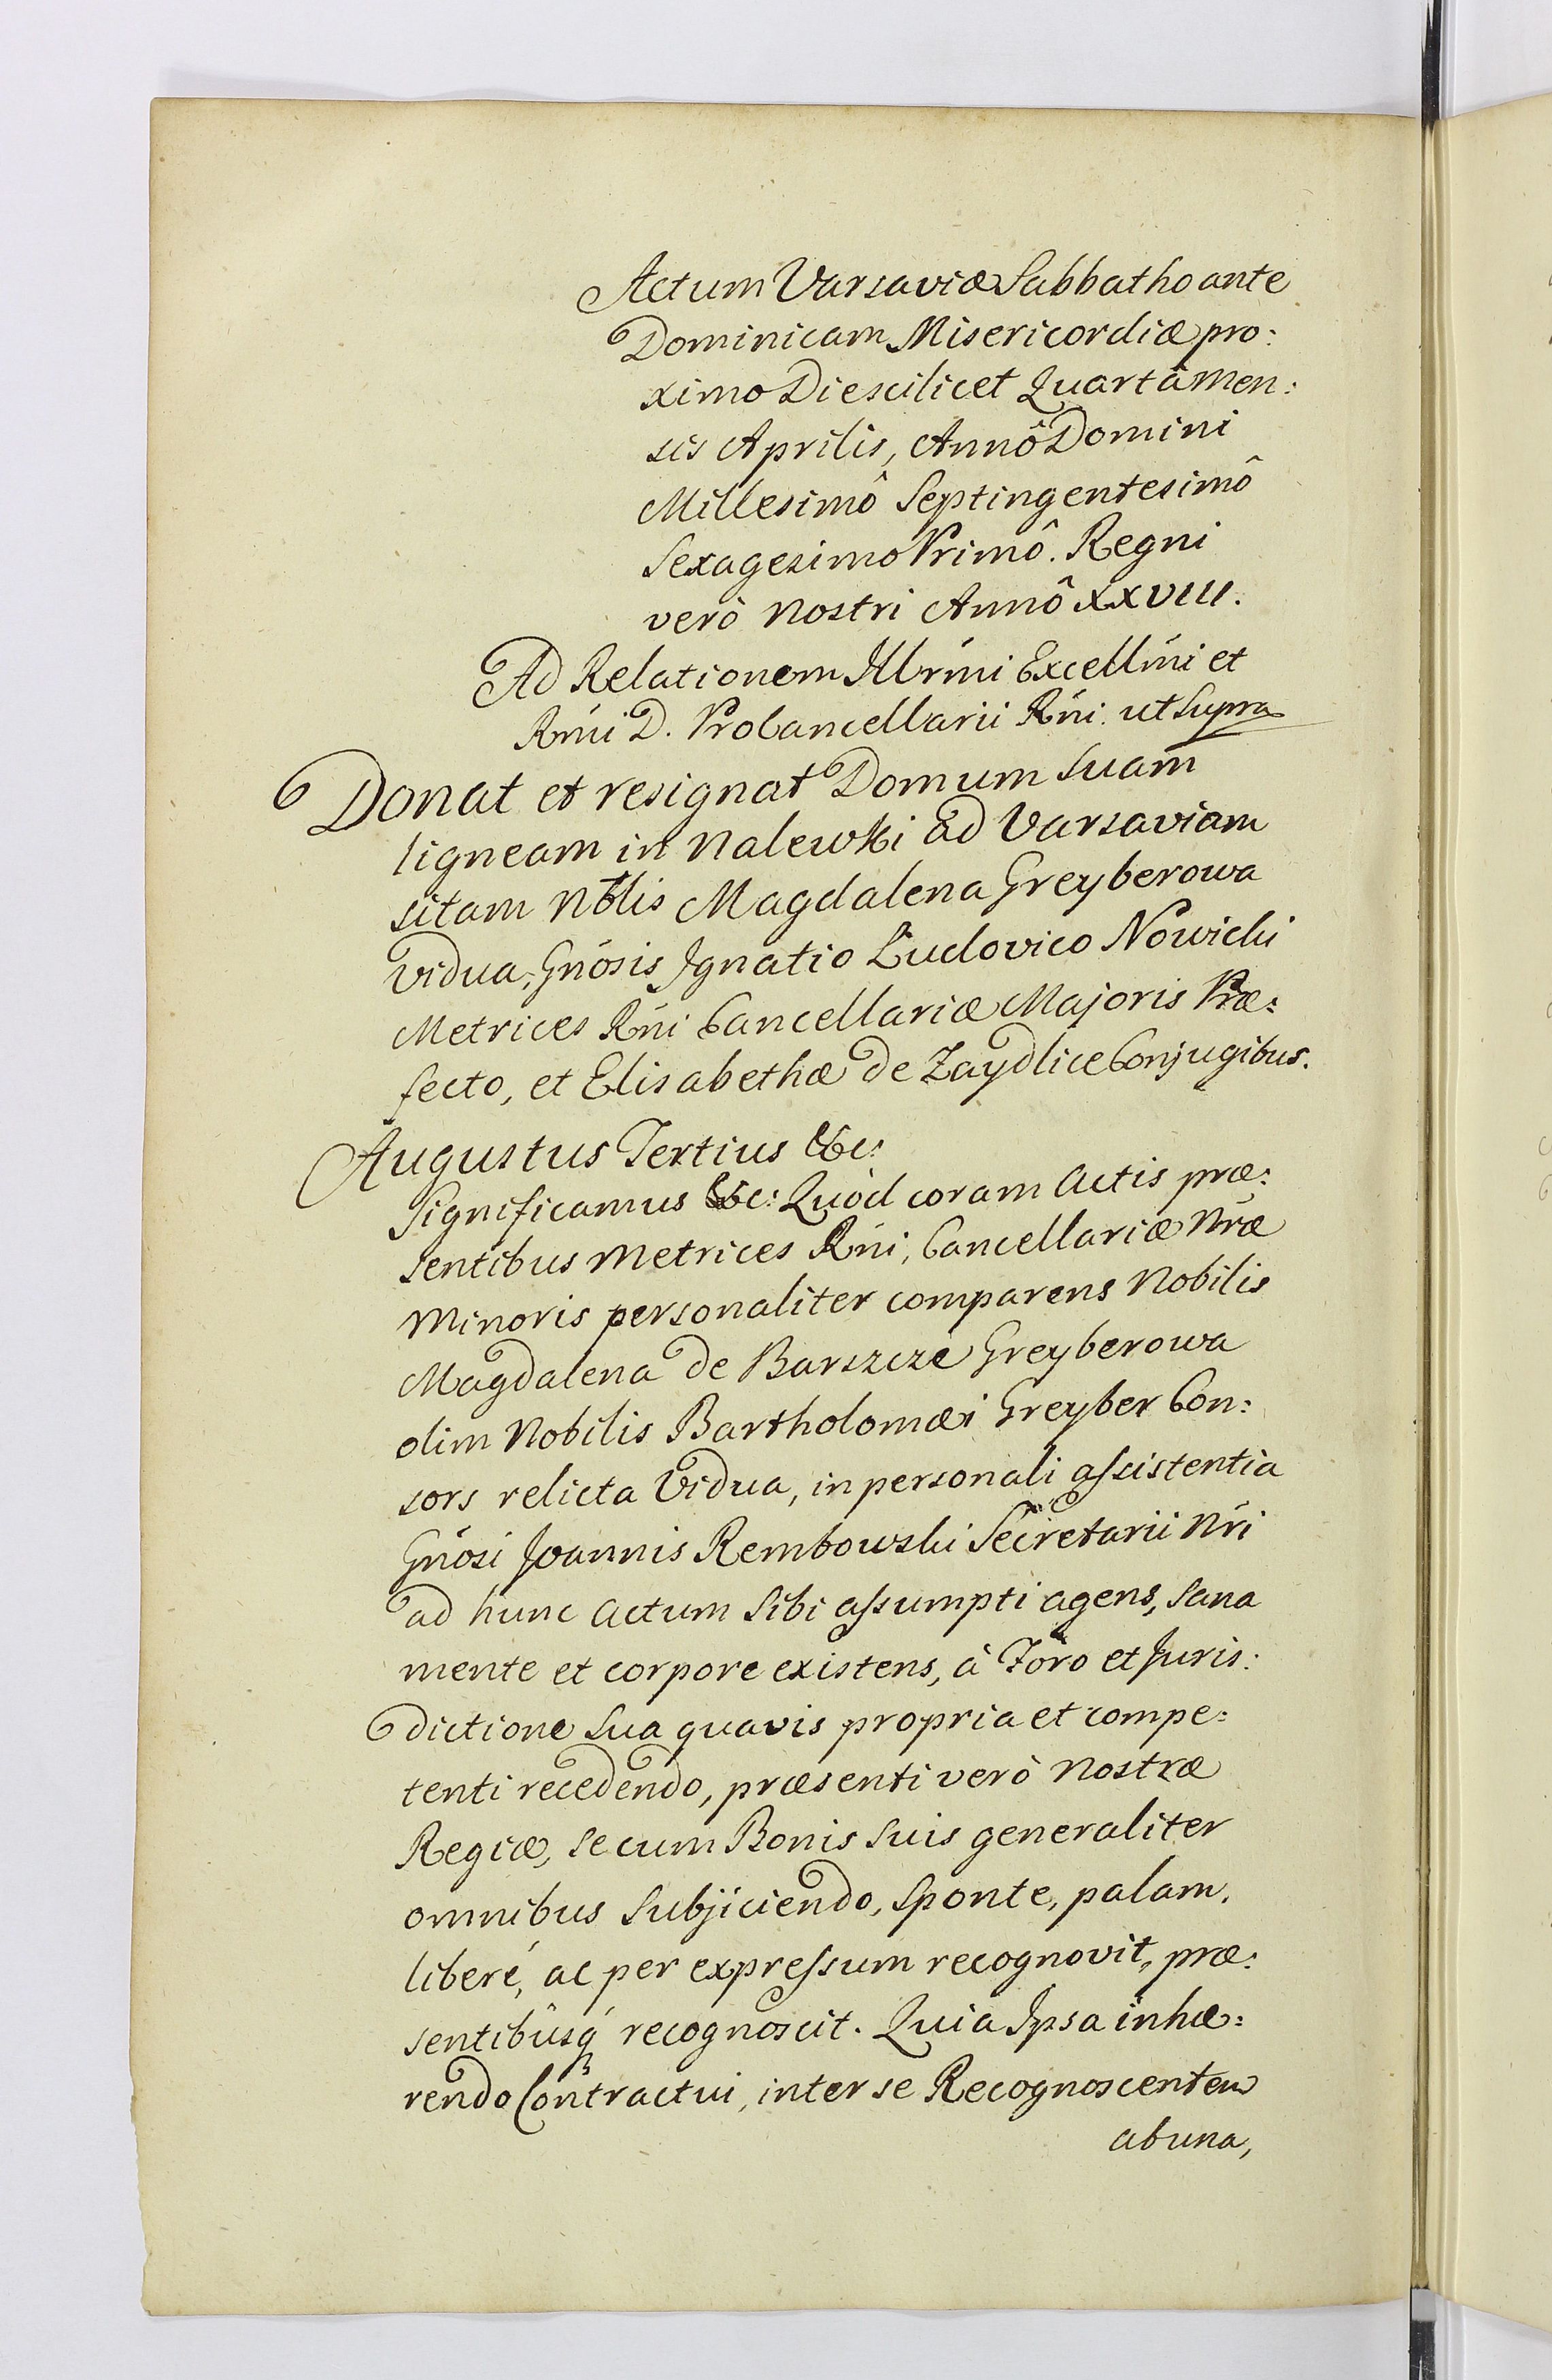 Actum Varsaviæ Sabbatho ante
Dominicam Misericordiæ pro:
ximo Die scilicet Quartâ Men:
sis Aprilis, Annô Domini
Millesimô Septingentesimô
Sexagesimo Primô. Regni
verò nostri Annô XXVIII.
Ad Relationem Illrmi Excellmi et
Rmi D. ProCancellarii Rni ut Supra
Donat et resignat Domum suam
ligneam in Nalewki ad Varsaviam
sitam Nblis Magdalena Greyberowa
vidua, Gnosis Ignatio Ludovico Nowicki
Metrices Rni Cancellariæ Majoris Præ:
fecto, et Elisabethæ de Zaydlice Conjugibus.
Augustus Tertius &c:
Significamus &c: Quòd coram Actis præ:
sentibus Metrices Rni, Cancellariæ Nræ
Minoris personaliter comparens Nobilis
Magdalena de Barszcze Greyberowa
olim Nobilis Bartholomæi Greyber Con:
sors relicta Vidua, in personali assistentia
Gnosi Joannis Rembowski Secretarii Nri
ad hunc actum sibi assumpti agens, sana
mente et corpore existens, à Foro et Juris:
dictione sua quavis propria et compe:
tenti recedendo, præsenti verò Nostræ
Regiæ, se cum Bonis suis generaliter
omnibus subjiciendo, sponte, palam,
liberé, ac per expressum recognovit, præ:
sentibûsq recognoscit. Quia Ipsa inhæ:
rendo Contractui, inter se Recognoscentem
ab una,